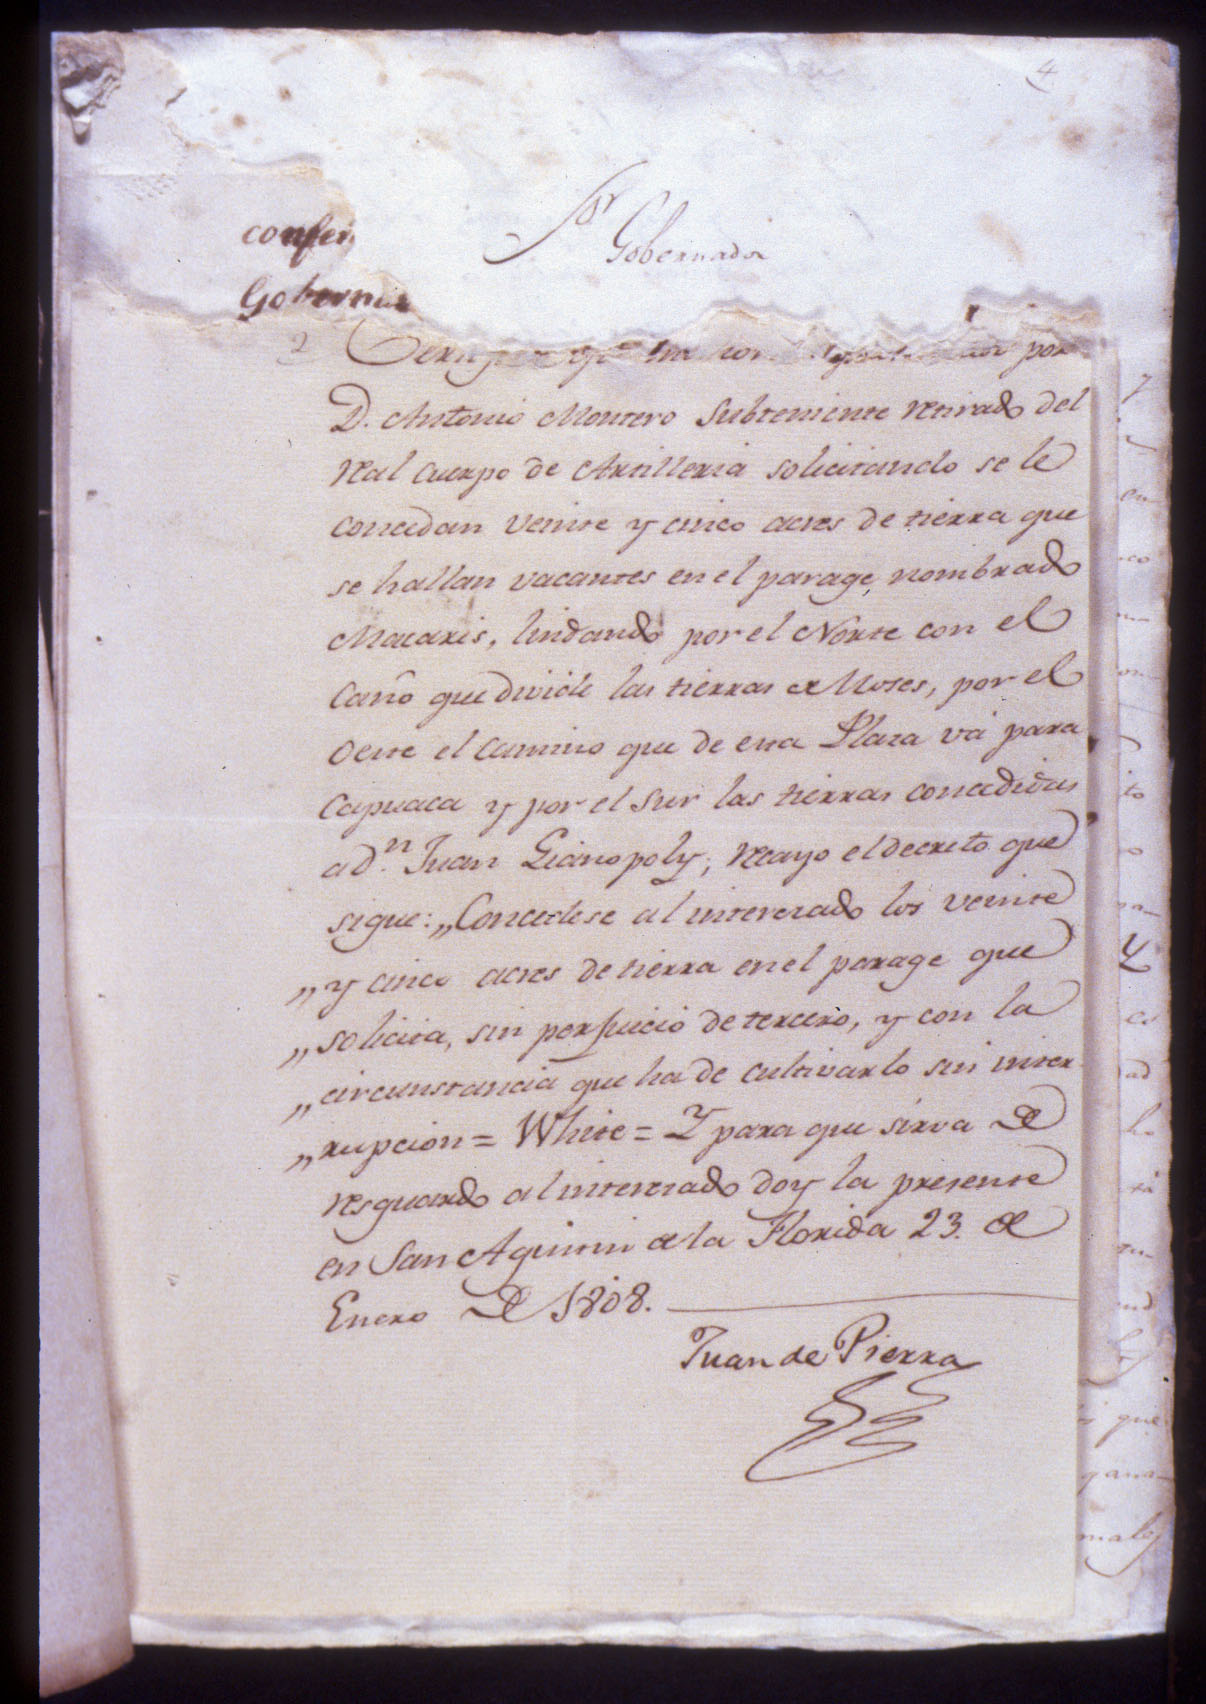 4
Sor
Gobernador
confer
Gobern
por
D. Antonio Montero Subteniente retirado del
Real Cuerpo de Artilleria solicitando se le
concedan veinte y cinco acres de tierra que
se hallan vacantes en el parage nombrado
Macaris, lindando por el Norte con el
Caño que divide las tierras de Moses, por el
Oeste el camino que de esta Plaza vá para
Capuaca y por el Sur las tierras concedidas
a dn. Juan Gianopoly; recayo el decreto que
sigue: „Concedese al interezado los veinte
„y cinco acres de tierra en el parage que
„solicita, sin perjuicio de tercero, y con la
„circunstancia que ha de cultivarlo sin inter-
„rupcion = White = Y para que sirva de
resguardo al interezado doy la presente
en San Agustin de la Florida 23. de
Enero de 1808.
Juan de Pierra